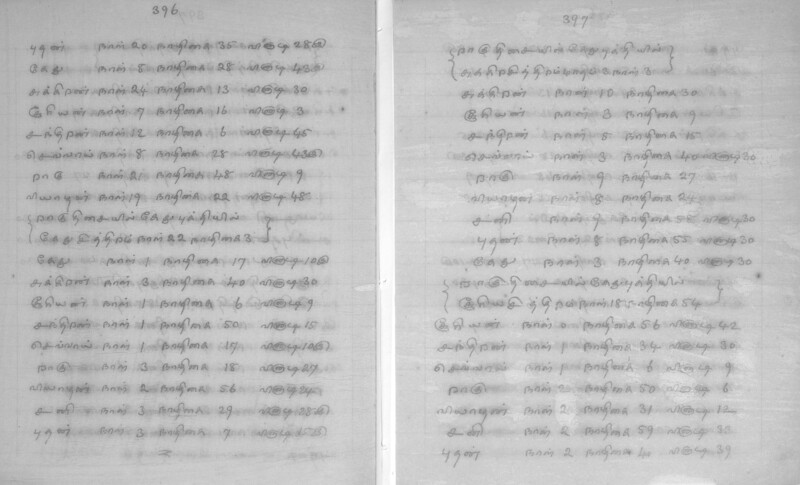 396
புதன் நாள் 20 நாழிகை 35 வினாடி 28
கேது நாள் 8 நாழிகை 28 வினாடி 43
சுக்கிரன் நாள் 24 நாழிகை 13 வினாடி 30
சூரியன் நாள் 7 நாழிகை 16 வினாடி 3
சந்திரன் நாள் 12 நாழிகை 6 வினாடி 45
செவ்வாய் நாள் 8 நாழிகை 28 வினாடி 43
ராகு நாள் 21 நாழிகை 48 வினாடி 9
வியாழன் நாள் 19 நாழிகை 22 வினாடி 48
ராகு திசையில் கேது புத்தியில்
கேது நாள் 22 நாழிகை 3
கேது நாள் 1 நாழிகை 17 வினாடி
சுக்கிரன் நாள் 3 நாழிகை 40 வினாடி 30
சூரியன் நாள் 1 நாழிகை 6 வினாடி 9
சந்திரன் நாள் 1 நாழிகை 50 வினாடி 15
செவ்வாய் நாள் 1 நாழிகை 17 வினாடி
ராகு நாள் 3 நாழிகை 18 வினாடி 27
வியாழன் நாள் 2 நாழிகை 56 வினாடி 24
சனி நாள் 3 நாழிகை 29 வினாடி 28
புதன் நாள் 3 நாழிகை 7 வினாடி
397
ராகு திசையில் கேது புத்தியில்
நாள் 3
சுக்கிரன் நாள் 10 நாழிகை 30
சூரியன் நாள் 3 நாழிகை 9
சந்திரன் நாள் 5 நாழிகை 15
செவ்வாய் நாள் 3 நாழிகை 40 வினாடி 30
ராகு நாள் 9 நாழிகை 27
வியாழன் நாள் 8 நாழிகை 24
சனி நாள் 9 நாழிகை வினாடி 30
புதன் நாள் 8 நாழிகை 55 வினாடி 30
கேது நாள் 3 நாழிகை 40 வினாடி 30
ராகு திசையில் கேது புத்தியில்
நாள் 18 நாழிகை 54
சூரியன் நாள் 0 நாழிகை 56 வினாடி 42
சந்திரன் நாள் 1 நாழிகை 34 வினாடி 30
செவ்வாய் நாள் 1 நாழிகை 6 வினாடி 9
ராகு நாள் 2 நாழிகை 50 வினாடி 6
வியாழன் நாள் 2 நாழிகை 31 வினாடி 12
சனி நாள் 2 நாழிகை 59 வினாடி
புதன் நாள் 2 நாழிகை வினாடி 39